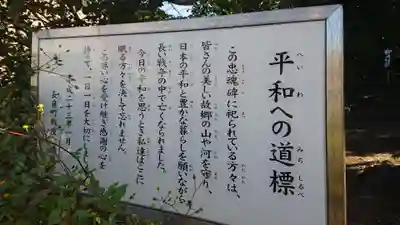 平和への道標
この忠魂碑に祀られている方々は、
皆さんの美しい故郷の山や河を守り、
日本の平和と豊かな暮らしを願いながら
長い戦争の中で亡くなられました。
今日の平和を思うとき私達はここに
眠る方々を決して忘れません。
この尊い心を受け継ぎ感謝の心を
持って、一日一日を大切にしま
平成二十三年一月